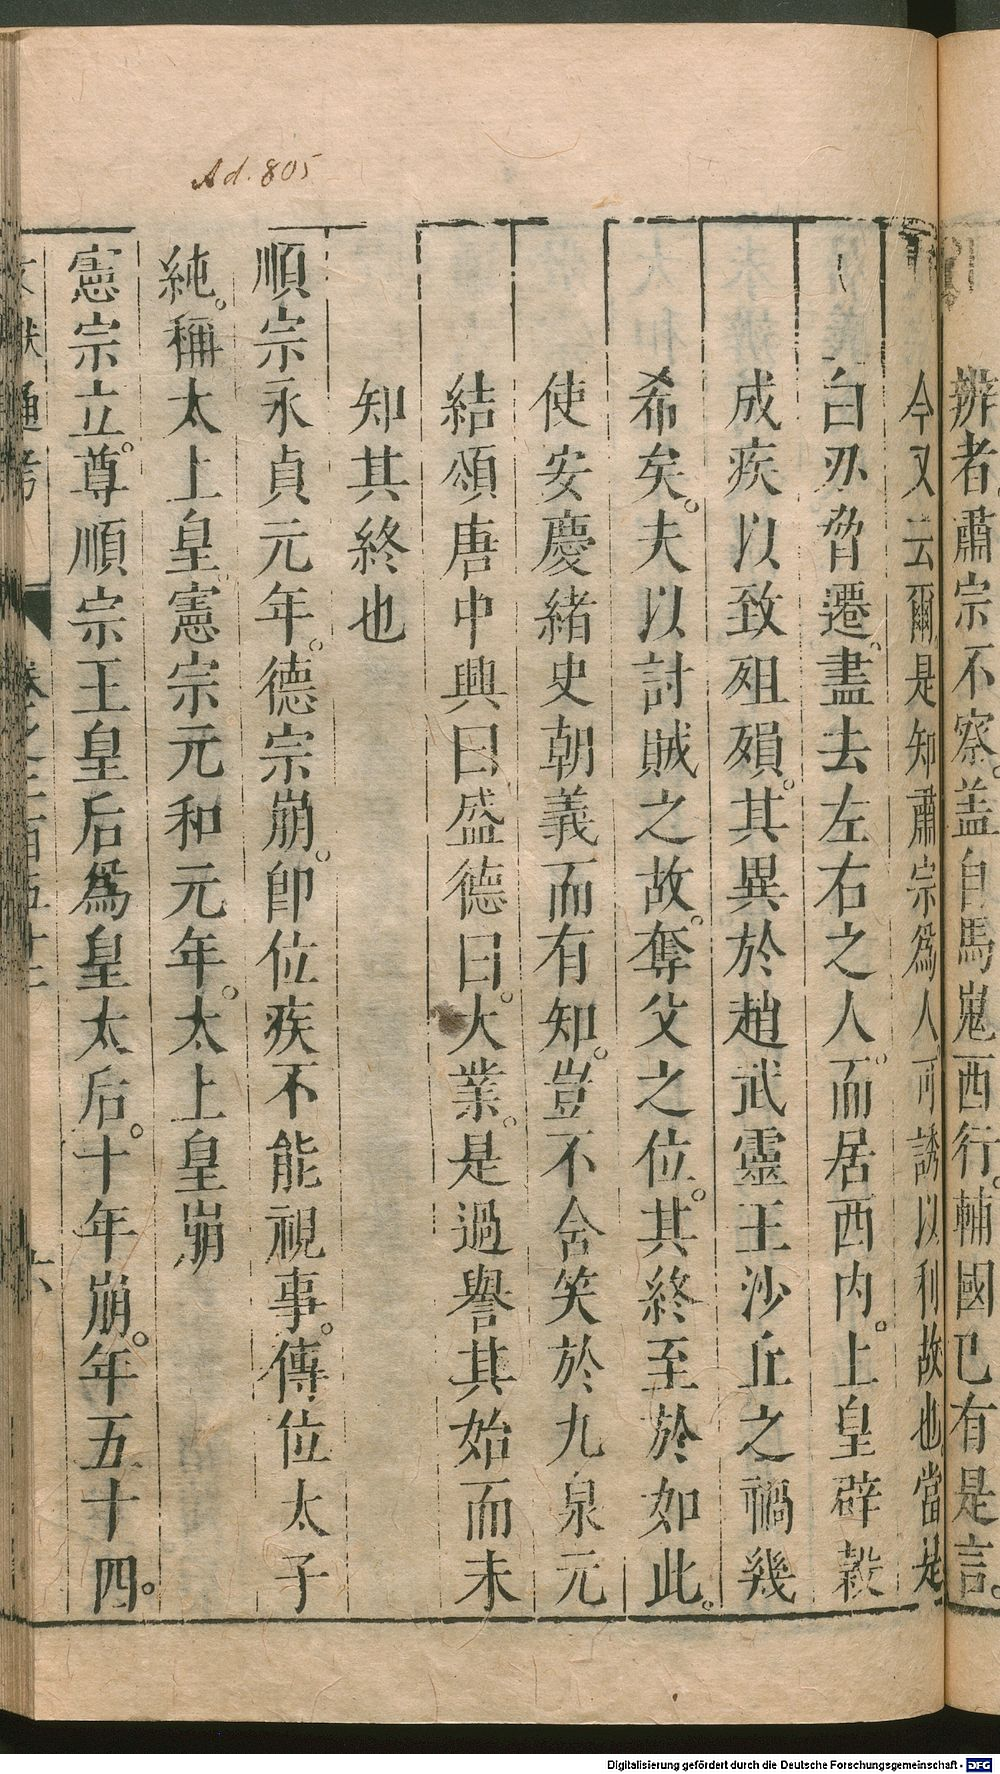 Ad. 805
辨者。肅宗不察。盖自馬嵬西行。輔國已有是言。
今又云爾是知肅宗爲人可誘以利故也當是
白刃脅遷。盡去左右之人。而居西内。上皇辟穀
成疾以致殂殞。其異於趙武靈王沙丘之禍幾
希矣。夫以討賊之故。奪父之位。其終至於如此。
使安慶緒史朝義而有知。豈不含笑於九泉元
結頌唐中興曰盛德曰。大業。是過譽其始而未
知其終也
順宗永貞元年。德宗崩。即位疾不能視事。傳位太子
純。稱太上皇。憲宗元和元年。太上皇崩
憲宗立。尊順宗王皇后爲皇太后。十年崩。年五十四。
文獻通考
六
Digitalisierung gefördert durch die Deutsche Forschungsgemeinschaft - DFG